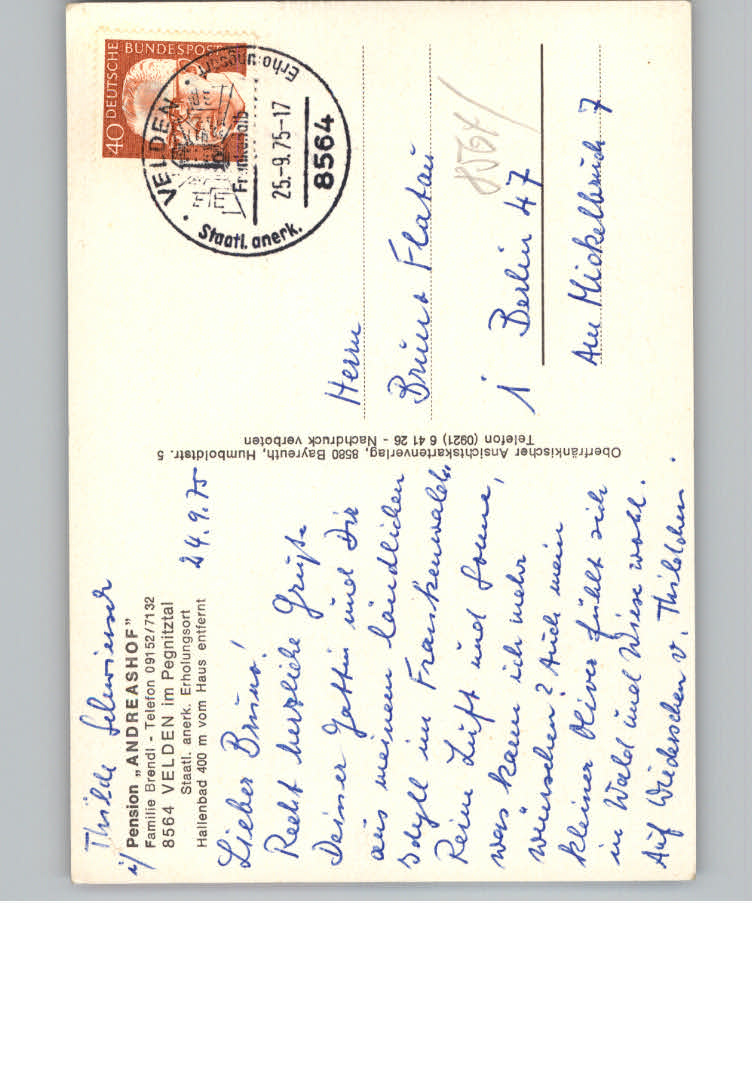 Thilde
i/ Pension „ANDREASHOF"
Familie Brendl - Telefon 09152/7132
8564 VELDEN im Pegnitztal
Staatl. anerk. Erholungsort
Hallenbad 400 m vom Haus entfernt
24.9.75
Lieber Bruno!
Recht herzliche Grüße
Deiner Gattin und Dir
aus meinem ländlichen
Idyll im Frankenwald.
Reine Luft und Sonne,
was kann ich mehr
wünschen? Auch mein
kleiner Oliver fühlt sich
in Wald und Wiese wohl.
Auf Wiedersehen v. Thildchen.
Oberfränkischer Ansichtskartenverlag, 8580 Bayreuth, Humboldtstr. 5
Telefon (0921) 6 41 26 - Nachdruck verboten
DEUTSCHE BUNDESPOST
40
VELDEN
Erholungsort
Frankenalb
25.-9.75-17
8564
Staatl. anerk.
Herrn
Bruno Flatau
1 Berlin 47
Am Mickelbruch 7